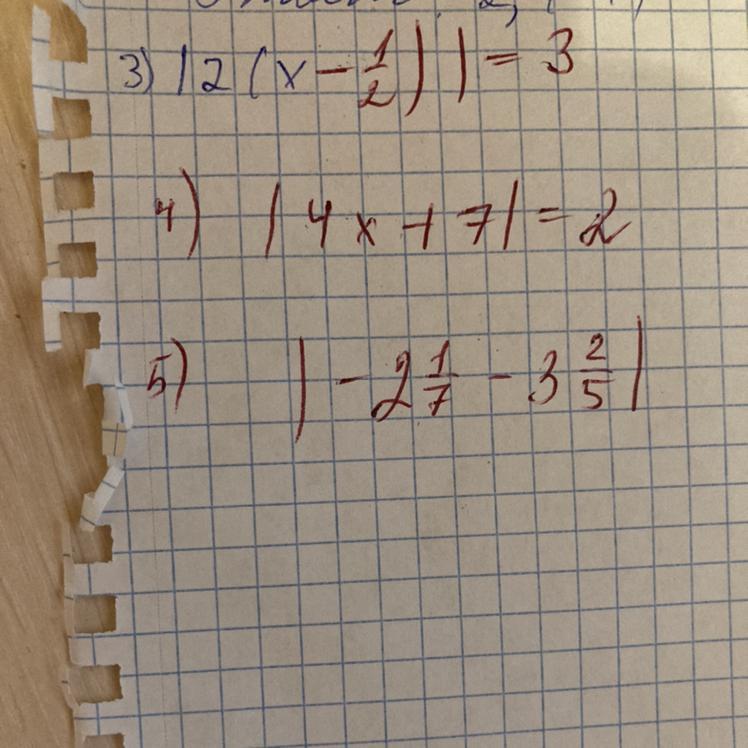 3) |2(x - 1/2)| = 3
4) |4x + 7| = 2
5) |-2 1/7 - 3 2/5|